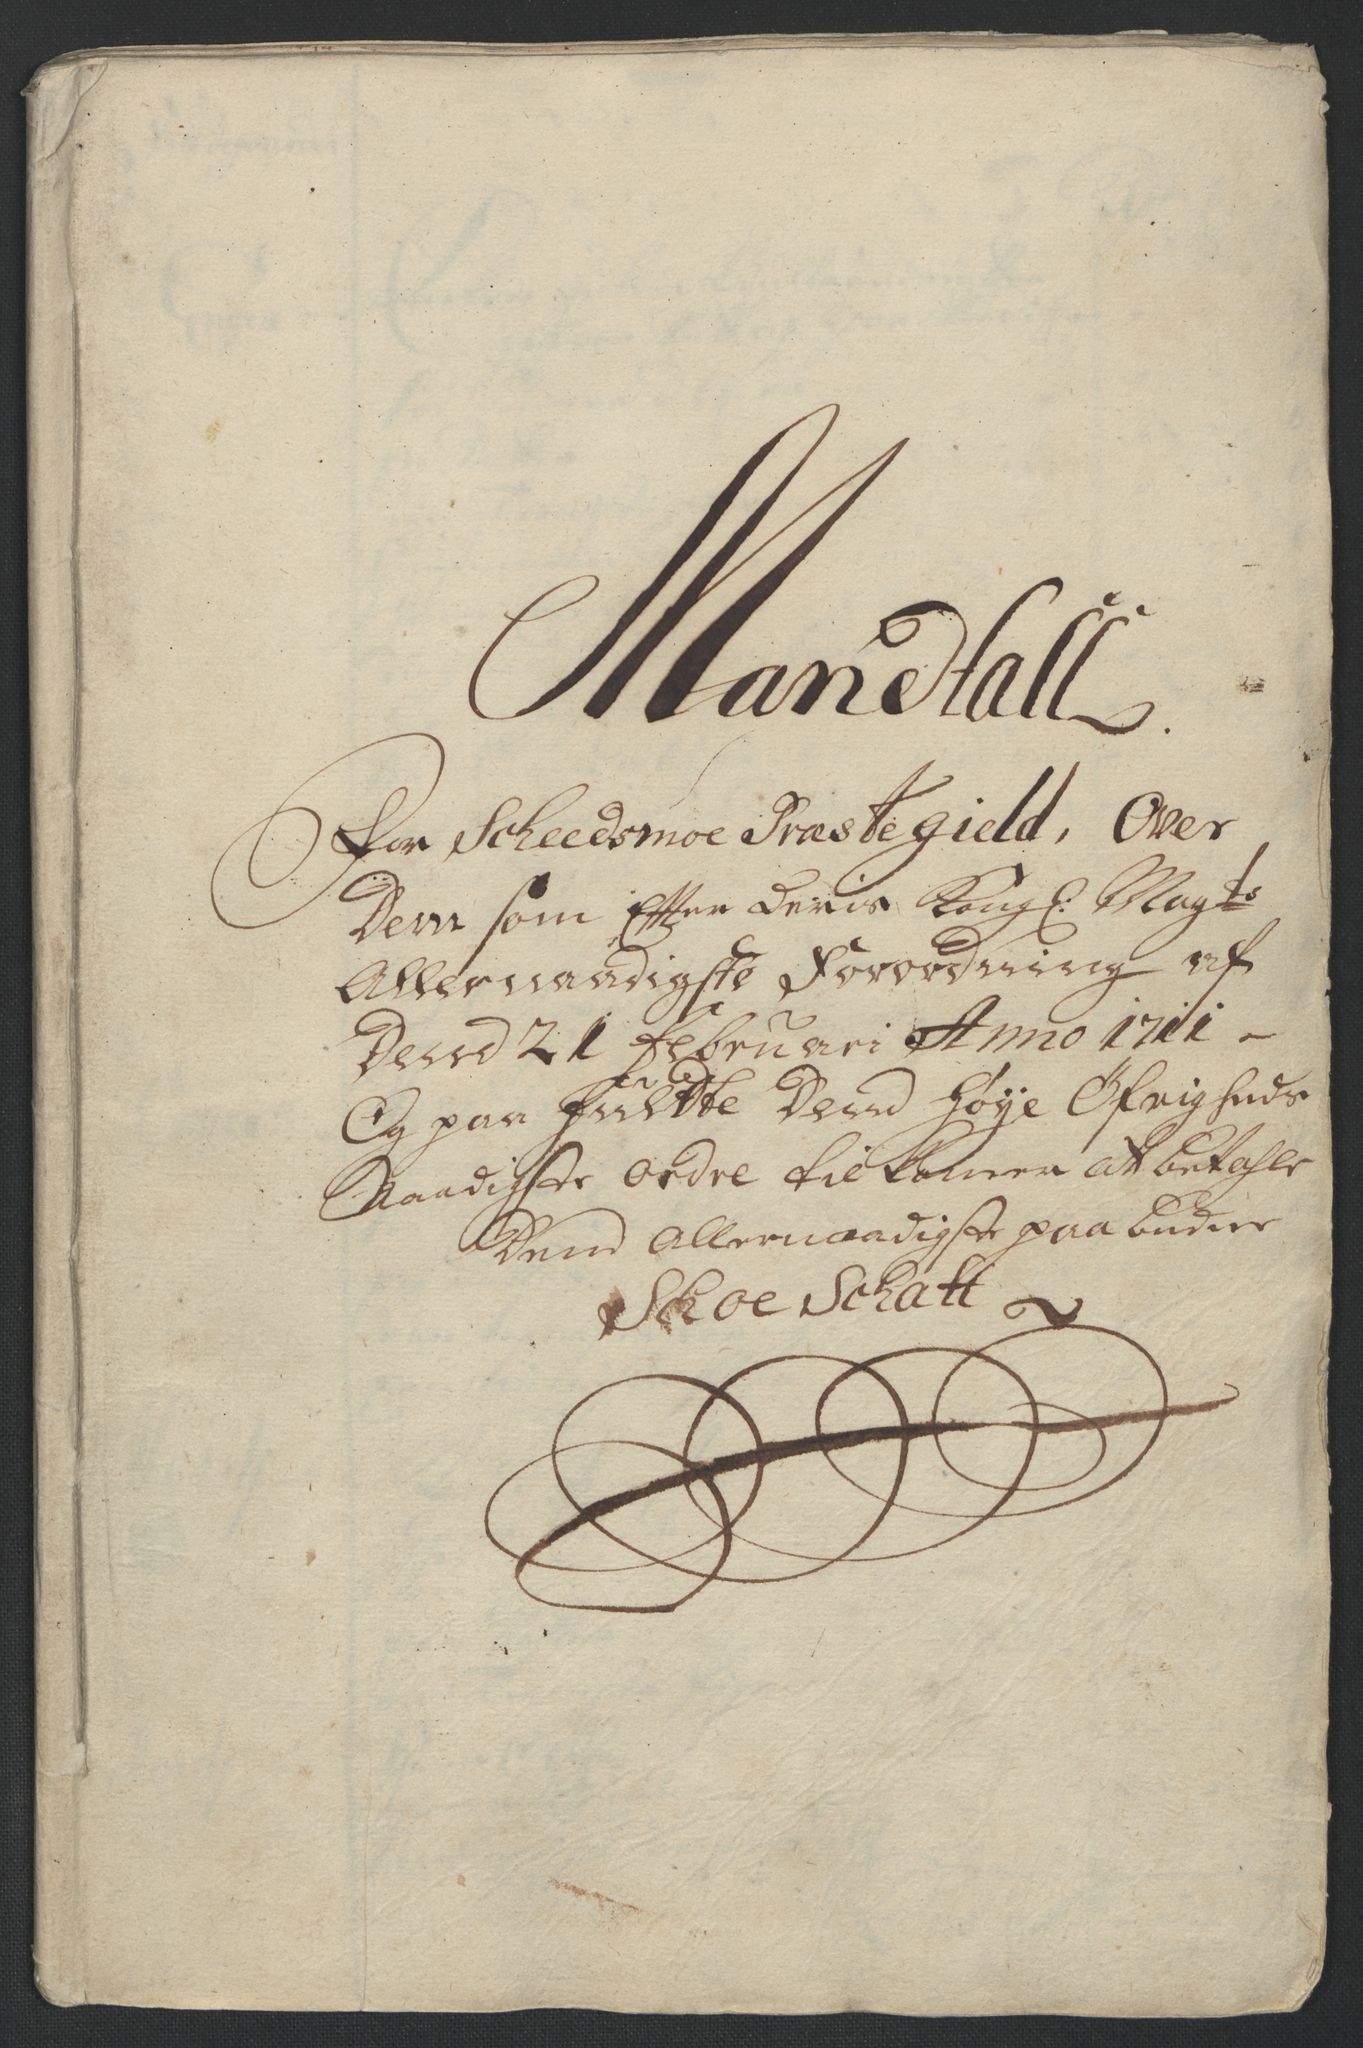 Mandtall.
For Scheedsmoe Præstegield, Over
Dem som Effter Deris Kongl: Mayts
Allernaadigste Forordning af
Dend 21 februari Anno 1711 -
Og paa fuldte Dend høye Øfrigheds
Naadigste Ordre tilkomer att betahle
Dend Allernaadigste paabudne
Skoe Schatt